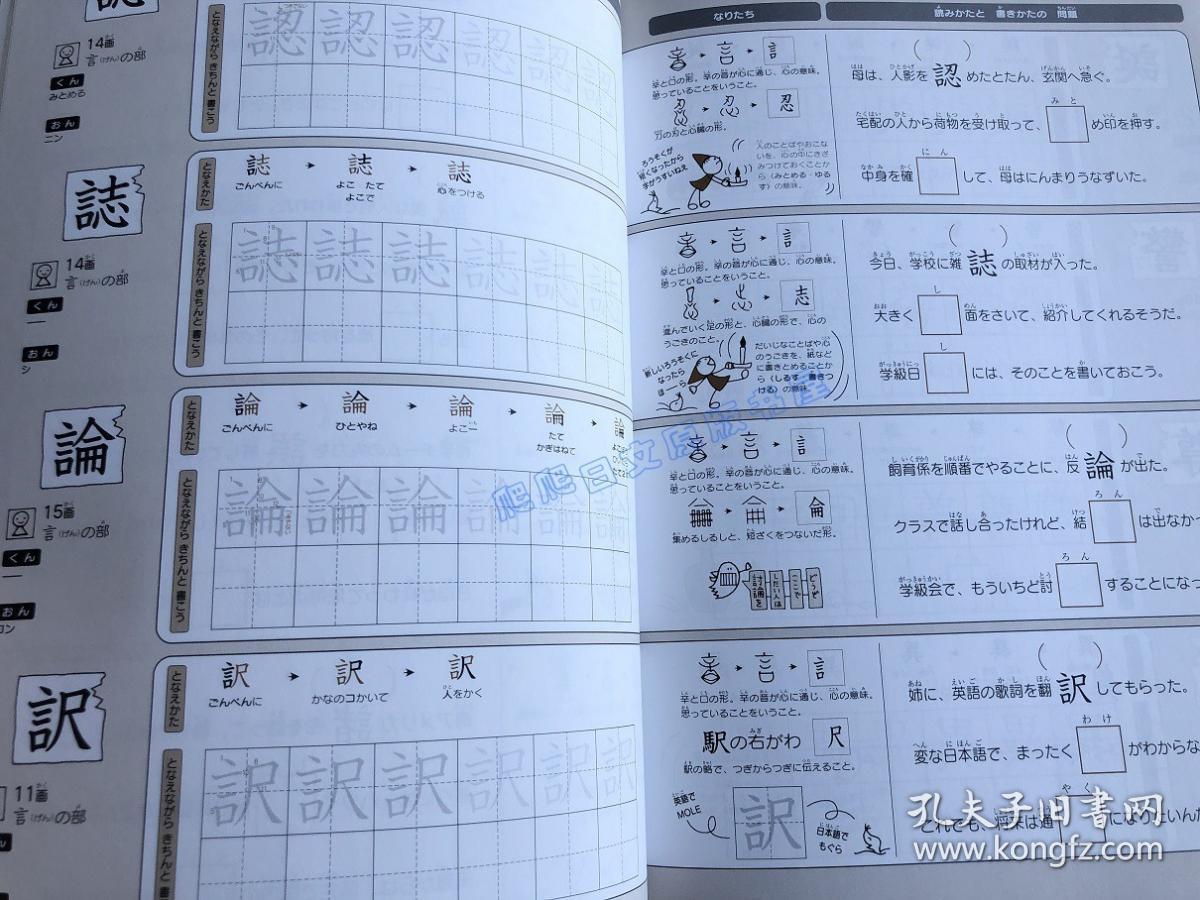 認
14画
言(げん)の部
くん
みとめる
おん
ニン
となえながら きちんと 書こう
認 認 認 認 認 認
誌
14画
言(げん)の部
くん
—
おん
シ
となえかた
誌 誌 誌
ごんべんに
よこ たて
よこで
心をつける
となえながら きちんと 書こう
誌 誌 誌 誌 誌 誌
論
15画
言(げん)の部
くん
—
おん
ロン
となえかた
論 論 論 論 論
ごんべんに
ひとやね
よこ一
たて
かぎはねて
となえながら きちんと 書こう
論 論 論 論 論 論
訳
11画
言(げん)の部
となえかた
訳 訳 訳
ごんべんに
かなのコかいて
人をかく
となえながら きちんと 書
訳 訳 訳 訳 訳 訳
なりたち
読みかたと 書きかたの 問題
言
辛と口の形。辛の音が心に通じ、心の意味。
思っていることをいうこと。
忍
刀の刃と心臓の形。
ろうそくが
短くなったから
字がうすいねえ
人のことばやおこな
いを、心の中にきざ
みつけておくことか
ら(みとめる・ゆる
す)の意味。
母は、人影を認めたとたん、玄関へ急ぐ。
宅配の人から荷物を受け取って、
みと
め印を押す。
中身を確
にん
して、母はにんまりうなずいた。
言
辛と口の形。辛の音が心に通じ、心の意味。
思っていることをいうこと。
志
進んでいく足の形と、心臓の形で、心の
うごきのこと。
新しいろうそくに
なったら
ほーら
だいじなことばや心
のうごきを、紙など
に書きとめることか
ら(しるす・書きつ
ける)の意味。
今日、学校に雑誌の取材が入った。
大きく
し
面をさいて、紹介してくれるそうだ。
学級日
し
には、そのことを書いておこう。
言
辛と口の形。辛の音が心に通じ、心の意味。
思っていることをいうこと。
侖
集めるしるしと、短ざくをつないだ形。
どうぞ
ここで
したい人は
飼育係を順番でやることに、反論が出た。
クラスで話し合ったけれど、結
ろん
は出なか
学級会で、もういちど討
ろん
することになっ
言
辛と口の形。辛の音が心に通じ、心の意味。
思っていることをいうこと。
駅の右がわ
尺
駅の略で、つぎからつぎに伝えること。
英語で
MOLE
訳
日本語で
もぐら
姉に、英語の歌詞を翻訳してもらった。
変な日本語で、まったく
わけ
がわからな
それでも、将来は通
やく
になりたいんだ
爬爬日文原版书屋
孔夫子旧书网
www.kongfz.com